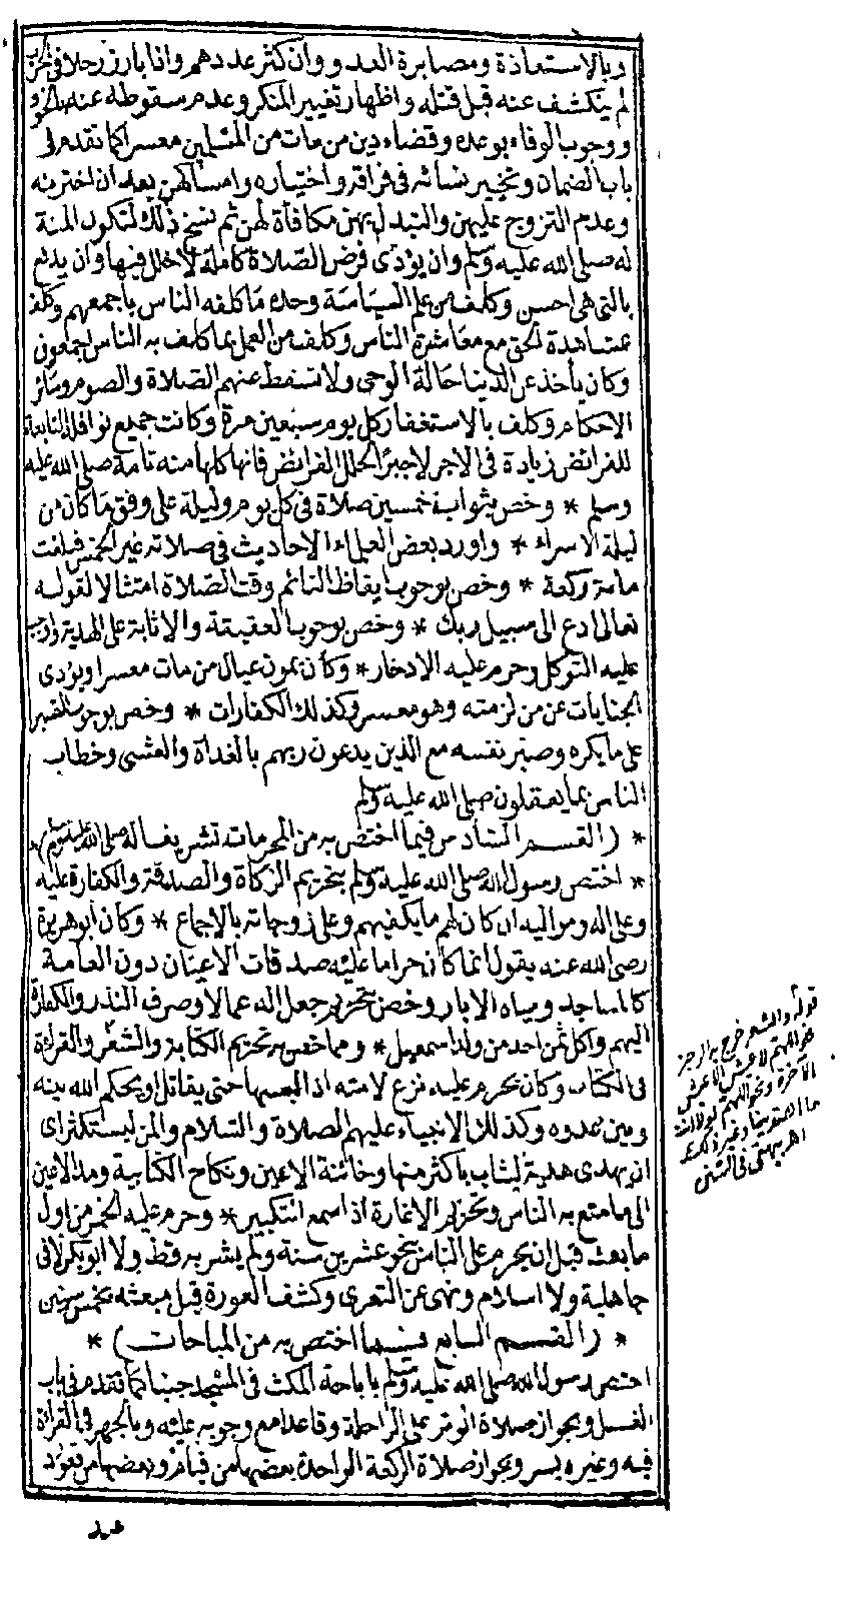 وبالاستعاذة ومصابرة العدو وان كثر عددهم واذا بارز رجلا في الحرب
لم ينكشف عنه قبل قتله واظهار تغيير المنكر وعدم سقوطه عنه للخوف
ووجوب الوفاء بوعده وقضاء دين من مات من المسلمين معسرا كما تقدم في
باب الضمان وتخيير نسائه في فراقه واختياره وامساكهن بعد ان اخترنه
وعدم التزوج عليهن والتبدل بهن مكافأة لهن ثم نسخ ذلك لتكون المنة
له صلى الله عليه وسلم وان يؤدى فرض الصلاة كاملة لا خلل فيها وان يدفع
بالتى هى احسن وكلف من علم السياسة وحده ما كلفه الناس باجمعهم وكلف
بمشاهدة الحق مع معاشرة الناس وكلف من العمل بما كلف به الناس اجمعون
وكان يأخذ عن الدنيا حالة الوحى ولا تسقط عنهم الصلاة والصوم وسائر
الاحكام وكلف بالاستغفار كل يوم سبعين مرة وكانت جميع نوافله التابعة
للفرائض زيادة في الاجر لا جبرا لخلل الفرائض فانها كلها منه تامة صلى الله عليه
وسلم * وخص بثواب خمسين صلاة في كل يوم وليلة على وفق ما كان من
ليلة الاسراء * واورد بعض العلماء الاحاديث في صلاته غير الخمس فبلغت
مائة ركعة * وخص بوجوب ايقاظ النائم وقت الصلاة امتثالا لقوله
تعالى ادع الى سبيل ربك * وخص بوجوب العقيقة والاثابة على الهدية واوجب
عليه التوكل وحرم عليه الادخار * وكان يمون عيال من مات معسرا ويؤدى
الجنايات عن من لزمته وهو معسر وكذلك الكفارات * وخص بوجوب الصبر
على ما يكره وصبر نفسه مع الذين يدعون ربهم بالغداة والعشى وخطاب
الناس بما يعقلون صلى الله عليه وسلم
* (القسم السادس فيما اختص به من المحرمات تشريفا له صلى الله عليه وسلم) *
* اختص رسول الله صلى الله عليه وسلم بتحريم الزكاة والصدقة والكفارة عليه
وعلى اله ومواليه ان كان لهم ما يكفيهم وعلى زوجاته بالاجماع * وكان ابو هريرة
رضى الله عنه يقول انما كان حراما عليه صدقات الاعيان دون العامة
كالمساجد ومياه الابار وخص بتحريم جعل اله عمالا وصرف النذر والكفارة
اليهم واكل ثمن احد من ولد اسمعيل * ومما خص به تحريم الكتابة والشعر والقراءة
في الكتاب وكان يحرم عليه نزع لامته اذا لبسها حتى يقاتل او يحكم الله بينه
وبين عدوه وكذلك الانبياء عليهم الصلاة والسلام والمن ليستكثر اى
ان يهدى هدية ليثاب باكثر منها وخائنة الاعين ونكاح الكتابية ومد الاعين
الى ما متع به الناس وتحريم الاغارة اذا سمع التكبير * وحرم عليه الخمر من اول
ما بعث قبل ان يحرم على الناس بنحو عشرين سنة ولم يشربه قط ولا ابو بكر لا في
جاهلية ولا اسلام ونهى عن التعرى وكشف العورة قبل مبعثه بخمس سنين
* (القسم السابع فيما اختص به من المباحات) *
اختص رسول الله صلى الله عليه وسلم باباحة المكث في المسجد جنبا كما تقدم في باب
الغسل وبجواز صلاة الوتر على الراحلة وقاعدا مع وجوبه عليه وبالجهر في القراءة
فيه وغيره يسر وبجواز صلاة الركعة الواحدة بعضها من قيام وبعضها من قعود
قوله والشعر خرج به الرجز
نحو اللهم لا عيش الا عيش
الآخرة ونحو اللهم لولا انت
ما اهتدينا وغير ذلك
اهـ بيهقى في السنن